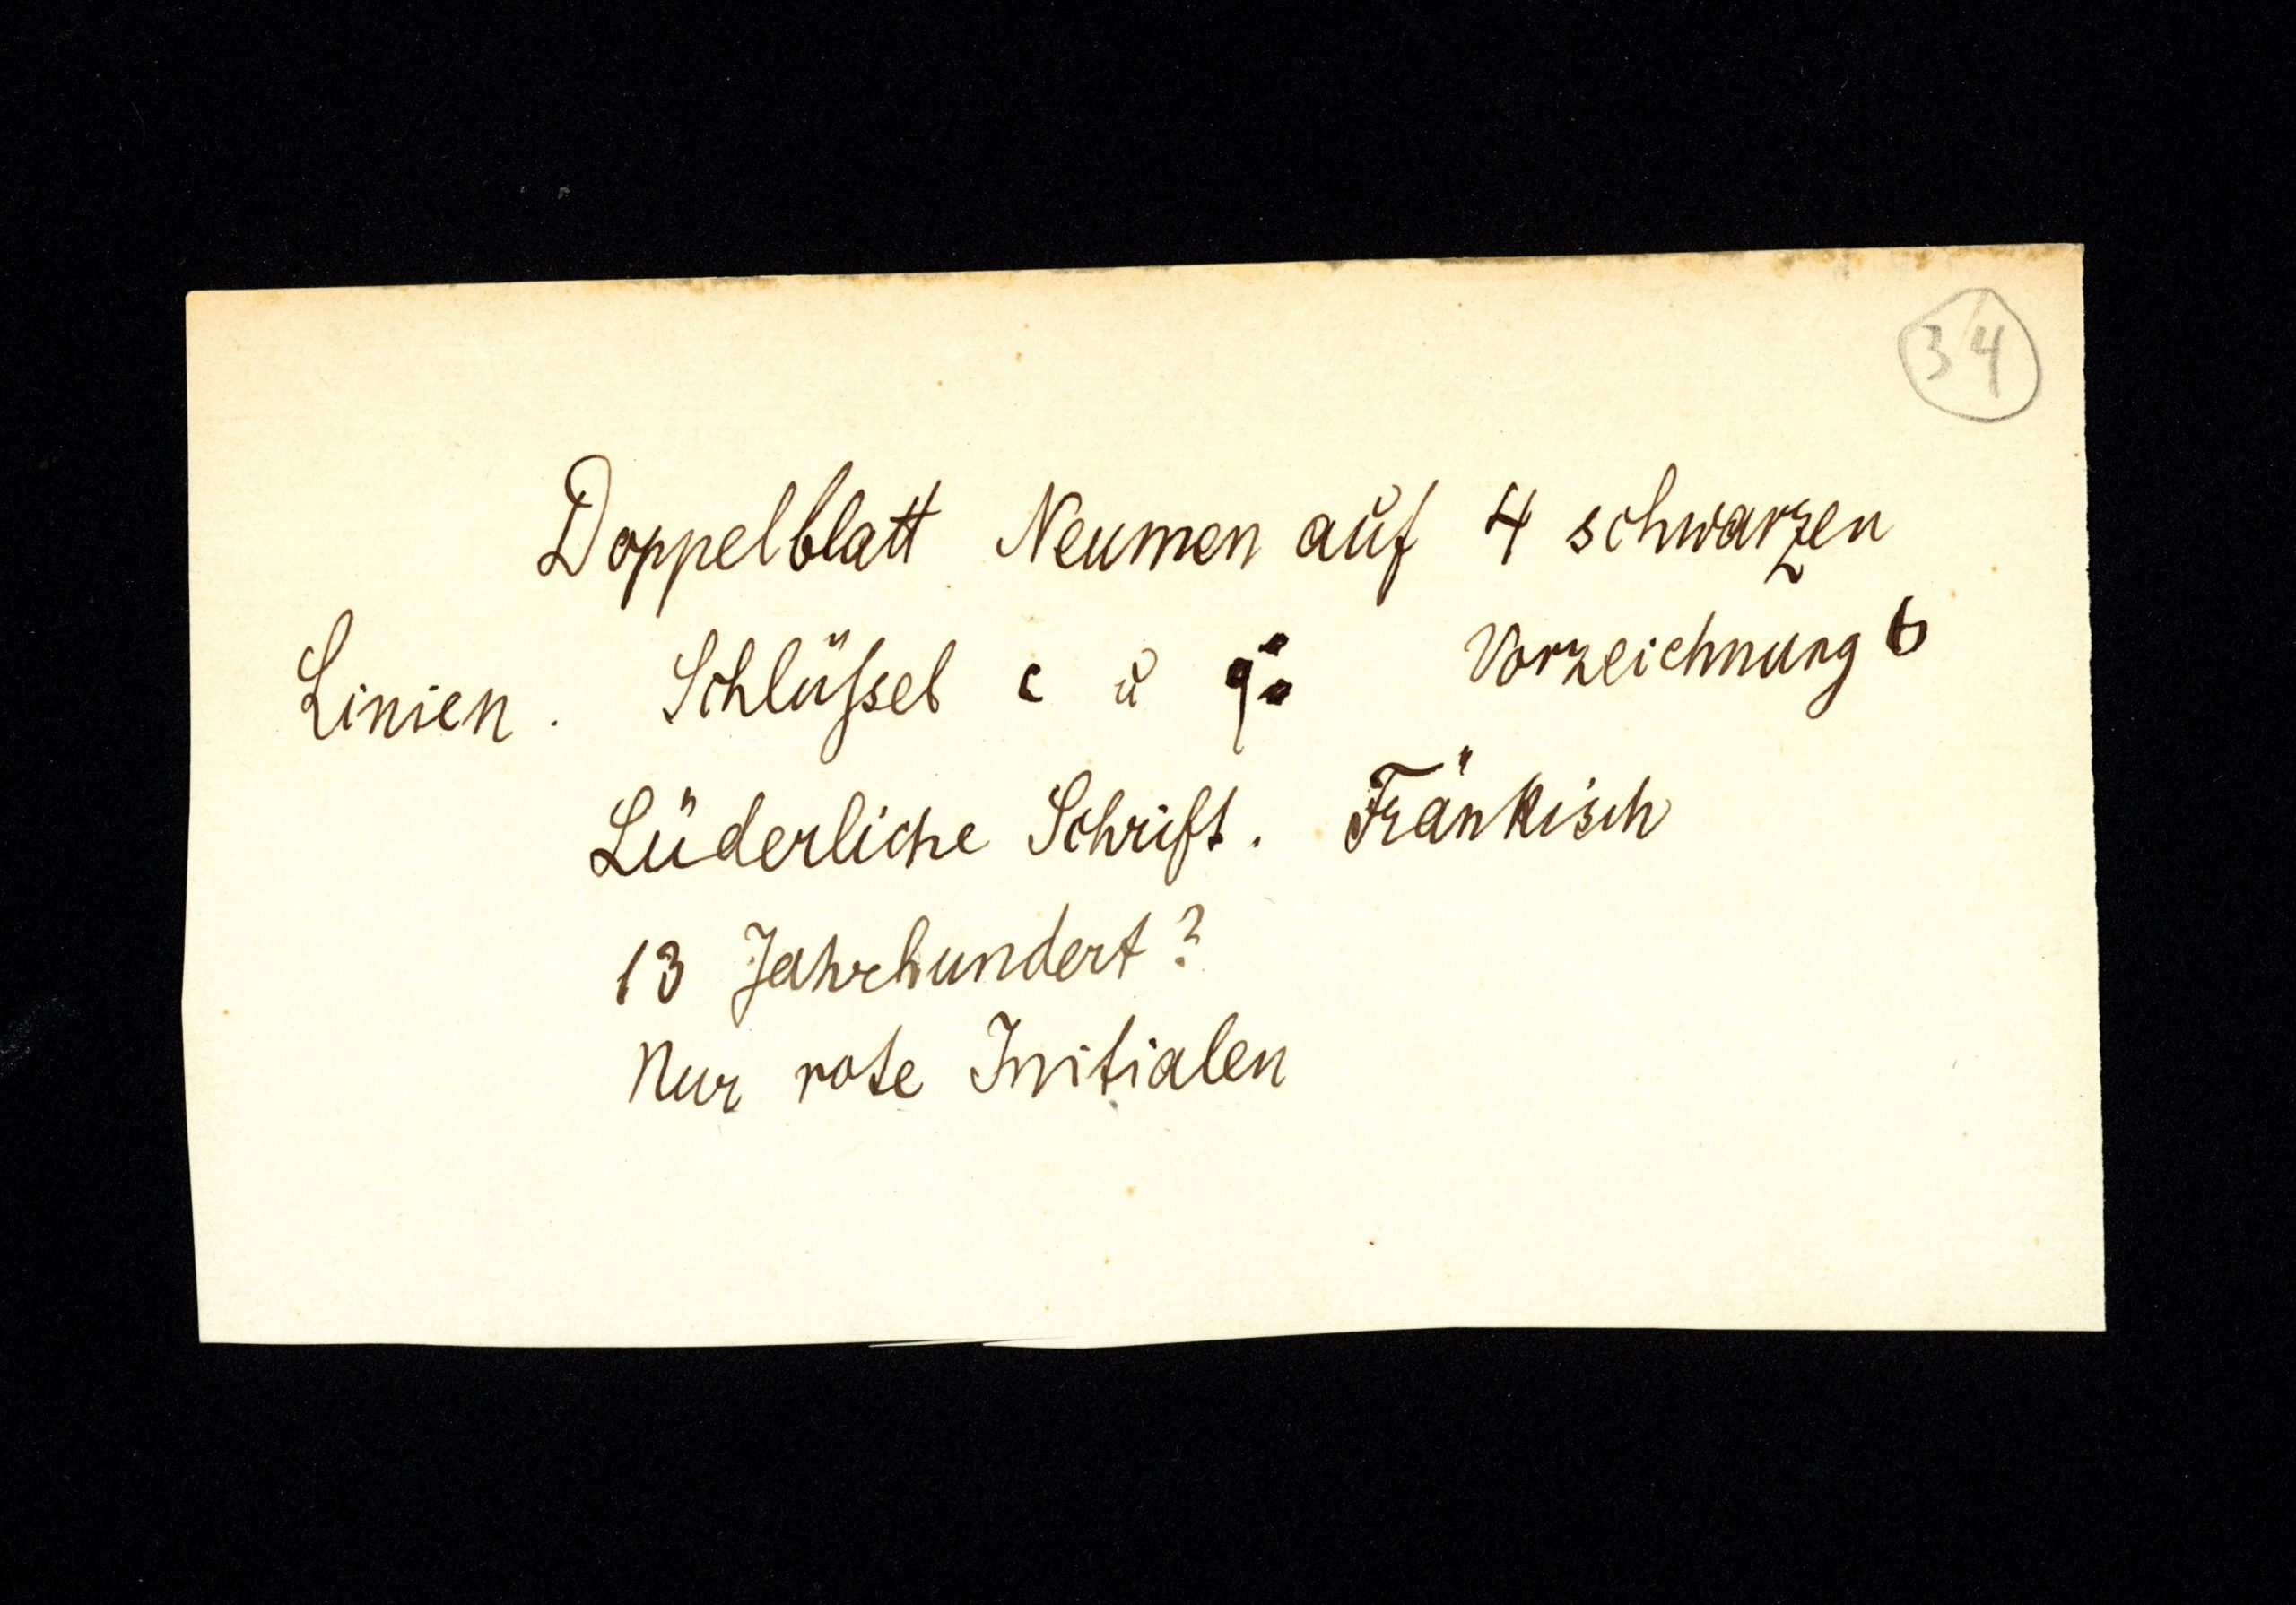 34
Doppelblatt Neumen auf 4 schwarzen
Linien. Schlüssel c u Vorzeichnung b
Lüderliche Schrift. Fränkisch
13 Jahrhundert?
Nur rote Initialen